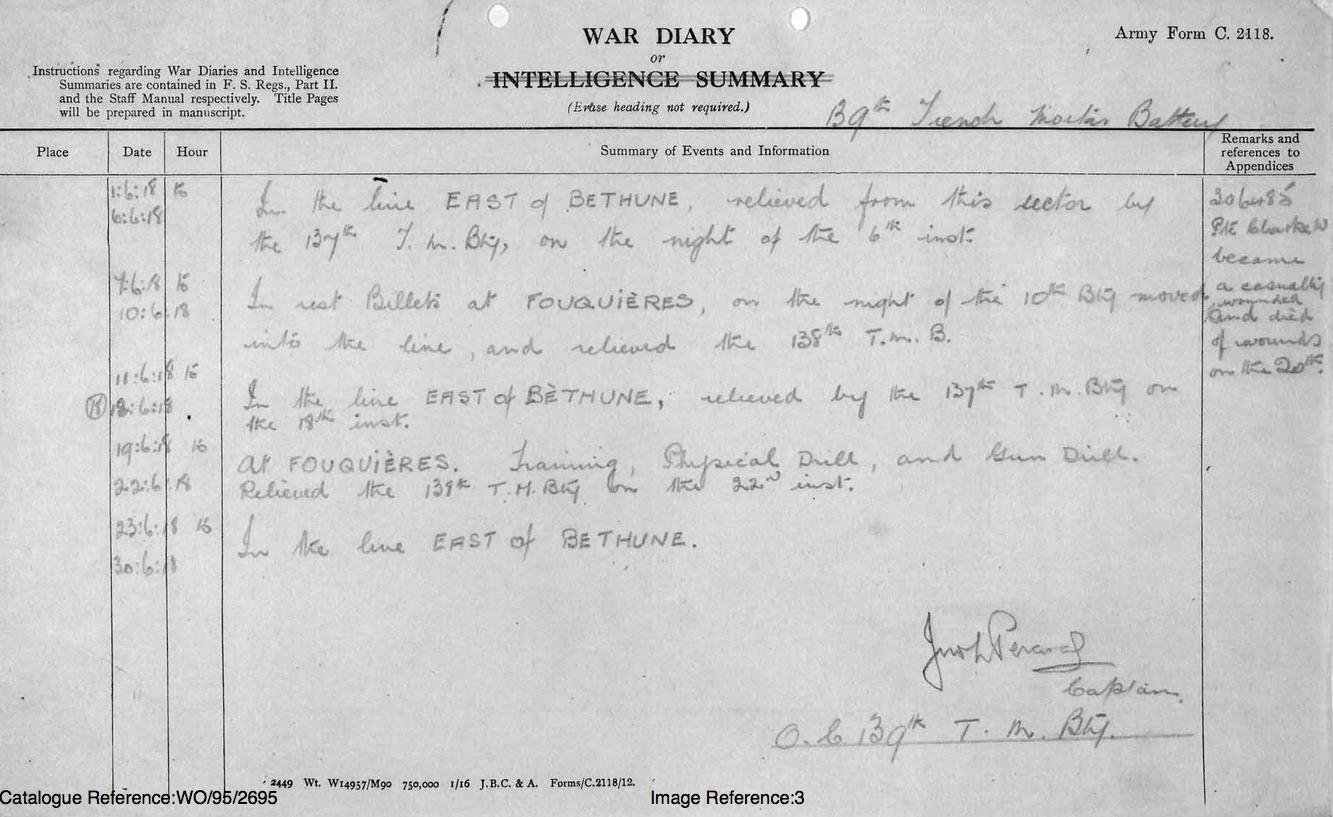 WAR DIARY
or
INTELLIGENCE SUMMARY
(Erase heading not required.)
Army Form C. 2118.
Instructions regarding War Diaries and Intelligence
Summaries are contained in F. S. Regs., Part II.
and the Staff Manual respectively. Title Pages
will be prepared in manuscript.
139th Trench Mortar Battery
Place Date Hour Summary of Events and Information Remarks and
references to
Appendices
1:6:18 to
6:6:18
In the line EAST of BETHUNE, relieved from this sector by
the 137th T. M. Bty, on the night of the 6th inst.
7:6:18 to
10:6:18
In rest Billets at FOUQUIÈRES, on the night of the 10th Bty moved
into the line, and relieved the 138th T.M. B.
11:6:18 to
18 18:6:18
In the line EAST of BÈTHUNE, relieved by the 137th T. M. Bty on
the 18th inst.
19:6:18 to
22:6:18
At FOUQUIÈRES. Training, Physical Drill, and Gun Drill.
Relieved the 138th T.M. Bty on the 22nd inst.
23:6:18 to
30:6:18
In the line EAST of BETHUNE.
306485
Pte Clarke W
became
a casualty
wounded
and died
of wounds
on the 20th.
Captain
O.C. 139th T. M. Bty.
2449 Wt. W14957/M90 750,000 1/16 J.B.C. & A. Forms/C.2118/12.
Catalogue Reference:WO/95/2695
Image Reference:3